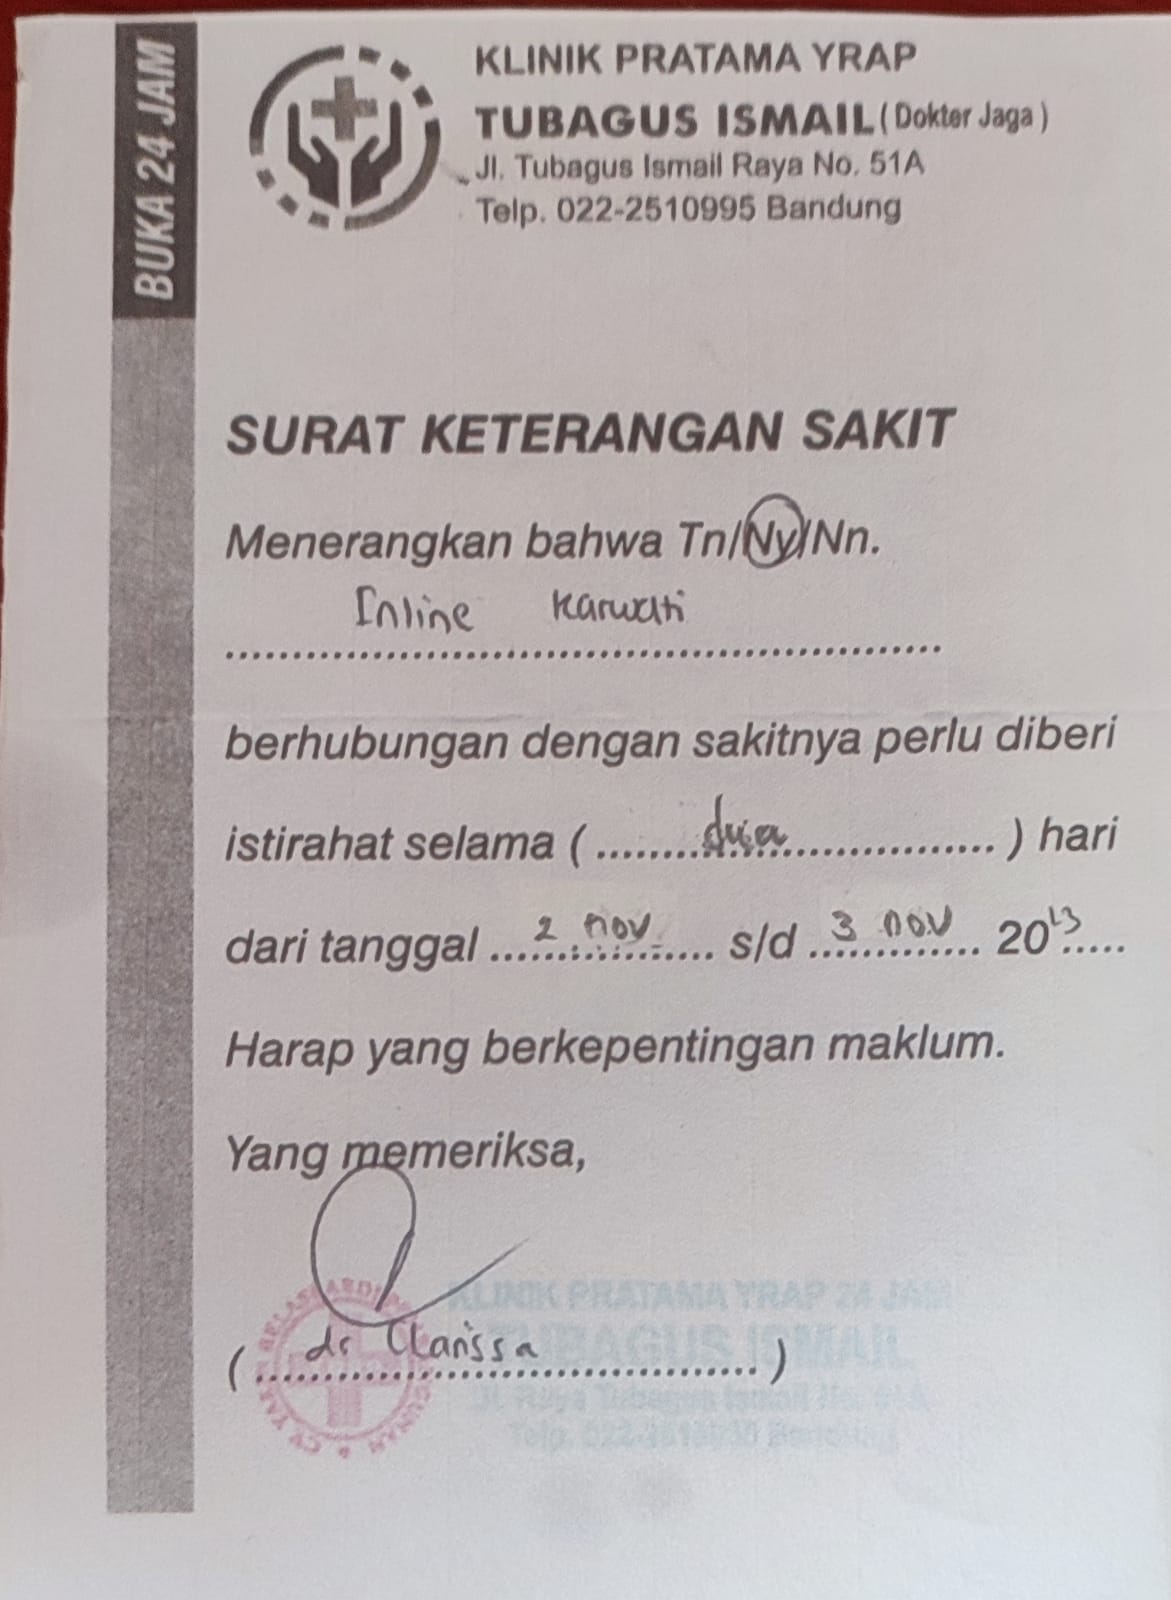 BUKA 24 JAM
KLINIK PRATAMA YRAP
TUBAGUS ISMAIL (Dokter Jaga)
Jl. Tubagus Ismail Raya No. 51A
Telp. 022-2510995 Bandung
SURAT KETERANGAN SAKIT
Menerangkan bahwa Tn/Ny/Nn.
Inline Karwati
berhubungan dengan sakitnya perlu diberi
istirahat selama (........dua....................) hari
dari tanggal ...2 nov... s/d ...3 nov... 2023.....
Harap yang berkepentingan maklum.
Yang memeriksa,
KLINIK PRATAMA YRAP 24 JAM
TUBAGUS ISMAIL
(...dr Clarissa..............)
Jl. Raya Tubagus Ismail No. 51A
Bandung